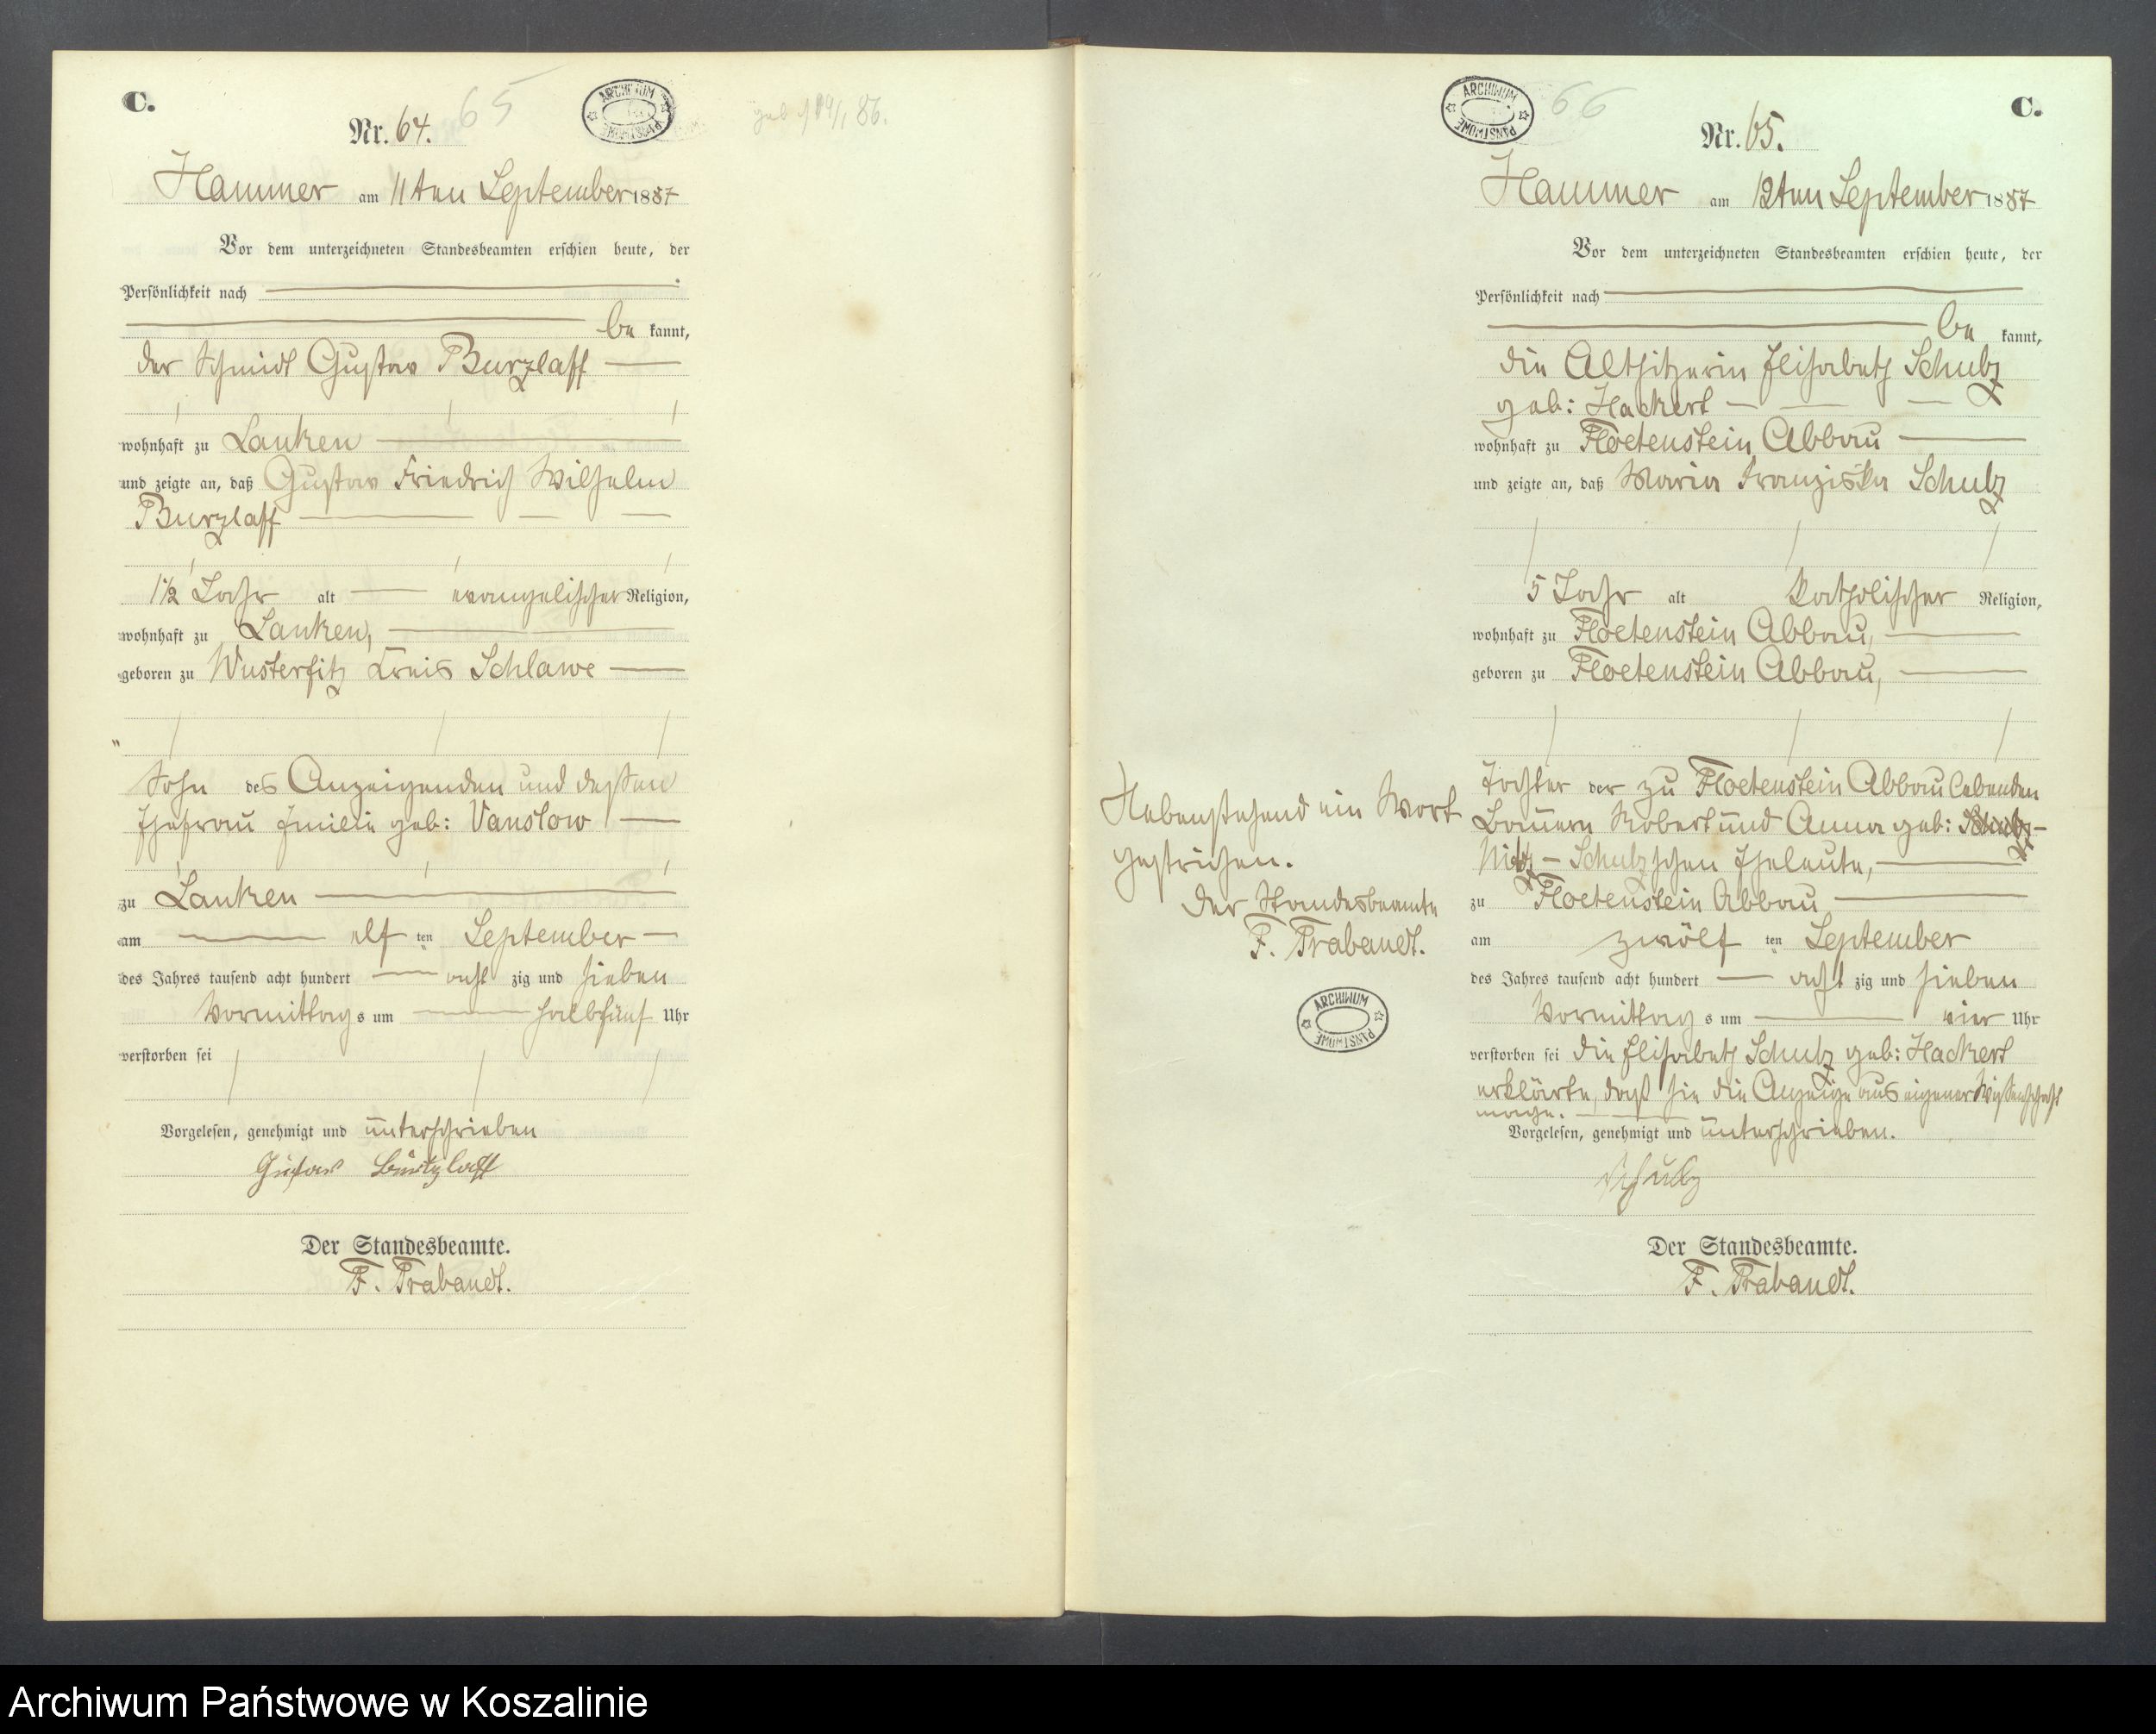 C.
65
ARCHIWUM PAŃSTWOWE
Nr. 64.
Hammer am 11ten September 1887
Vor dem unterzeichneten Standesbeamten erschien heute, der
Persönlichkeit nach
be kannt,
der Schmidt Gustav Burzlaff
wohnhaft zu Lanken
und zeigte an, daß Gustav Friedrich Wilhelm
Burzlaff
1 1/2 Jahr alt evangelischer Religion,
wohnhaft zu Lanken,
geboren zu Wusterfitz Kreis Schlawe
Sohn des Anzeigenden und dessen
Ehefrau Emilie geb: Vanslow
zu Lanken
am elf ten September
des Jahres tausend acht hundert acht zig und sieben
Vormittag s um halbfünf Uhr
verstorben sei
Vorgelesen, genehmigt und unterschrieben
Gustav Burtzlaff
Der Standesbeamte.
F. Trabandt.
C.
66
ARCHIWUM PAŃSTWOWE
Nr. 65.
Hammer am 12ten September 1887
Vor dem unterzeichneten Standesbeamten erschien heute, der
Persönlichkeit nach
be kannt,
die Altsitzerin Elisabeth Schulz
geb: Hackert
wohnhaft zu Floetenstein Abbau
und zeigte an, daß Maria Franziska Schulz
5 Jahr alt katholischer Religion,
wohnhaft zu Floetenstein Abbau,
geboren zu Floetenstein Abbau,
Tochter der zu Floetenstein Abbau lebenden
Bauern Robert und Anna geb: Schulz-
Nitz - Schulzschen Eheleute,
zu Floetenstein Abbau
am zwölf ten September
des Jahres tausend acht hundert acht zig und sieben
Vormittag s um vier Uhr
verstorben sei die Elisabeth Schulz geb: Hackert
erklärte, daß sie die Anzeige aus eigener Wissenschaft
mache.
Vorgelesen, genehmigt und unterschrieben.
Schulz
Der Standesbeamte.
F. Trabandt.
Nebenstehend ein Wort
gestrichen.
Der Standesbeamte
F. Trabandt.
ARCHIWUM PAŃSTWOWE
Archiwum Państwowe w Koszalinie